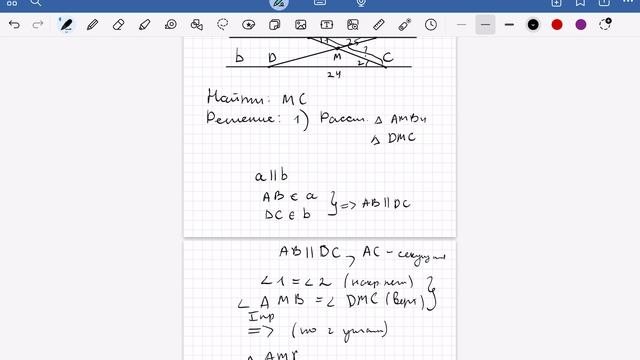 25
b D M C
2
24
Найти: MC
Решение: 1) Рассм. △ AMB и
△ DMC
a || b
AB ∈ a
DC ∈ b
} => AB || DC
AB || DC, AC - секущая
∠ 1 = ∠ 2 (накр лет)
∠ AMB = ∠ DMC (верт)
}
I пр
=> (по 2 углам)
△ AMB